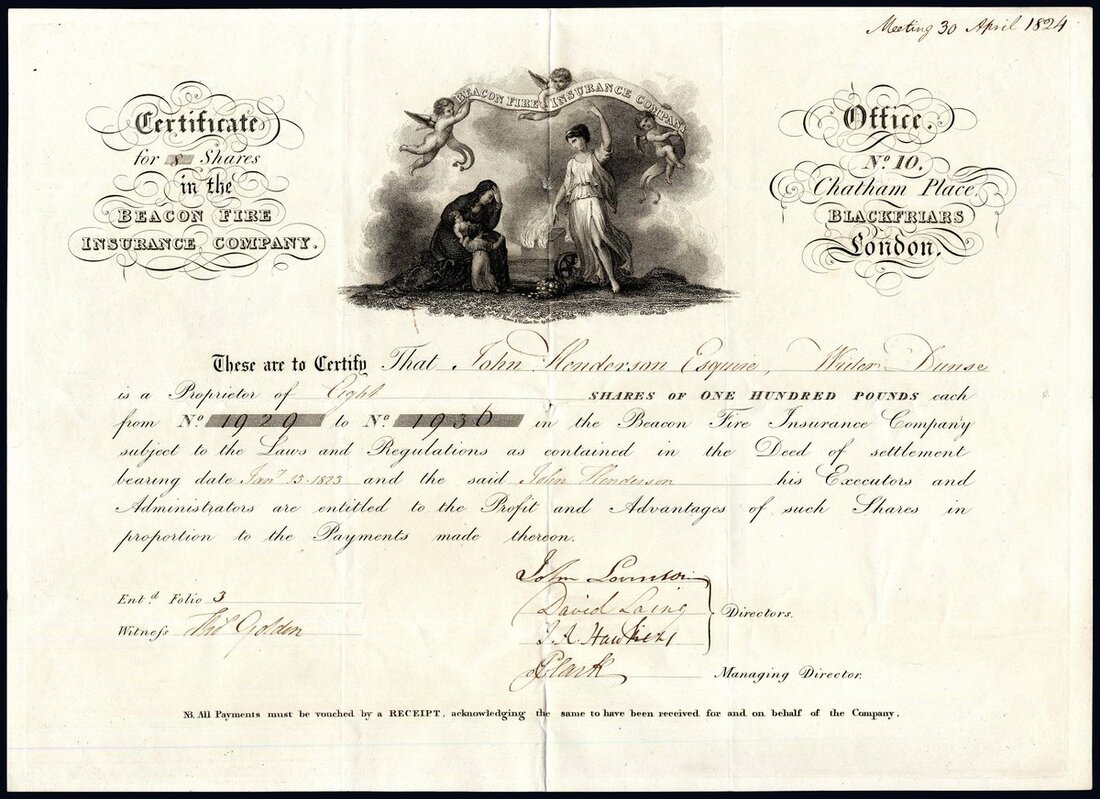 Meeting 30 April 1824
Certificate
for 8 Shares
in the
BEACON FIRE
INSURANCE COMPANY.
BEACON FIRE INSURANCE COMPANY
Office.
No. 10.
Chatham Place.
BLACKFRIARS
London.
These are to Certify That John Henderson Esquire, Writer Dunse
is a Proprietor of Eight SHARES OF ONE HUNDRED POUNDS each
from No. 1929 to No. 1936 in the Beacon Fire Insurance Company
subject to the Laws and Regulations as contained in the Deed of settlement
bearing date Jany. 13. 1823 and the said John Henderson his Executors and
Administrators are entitled to the Profit and Advantages of such Shares in
proportion to the Payments made thereon.
John
David Laing
Directors.
Entd. Folio 3
Witness Thos Golden
Clark
Managing Director.
NB. All Payments must be vouched by a RECEIPT, acknowledging the same to have been received for and on behalf of the Company.